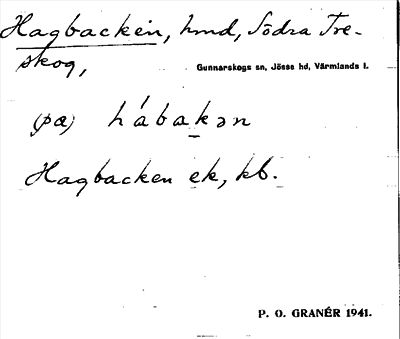 Hagbacken, hmd, Södra Tre-
skog,
Gunnarskogs sn, Jösse hd, Värmlands l.
(pæ) hábakən
Hagbacken ek, kb.
P. O. GRANÉR 1941.